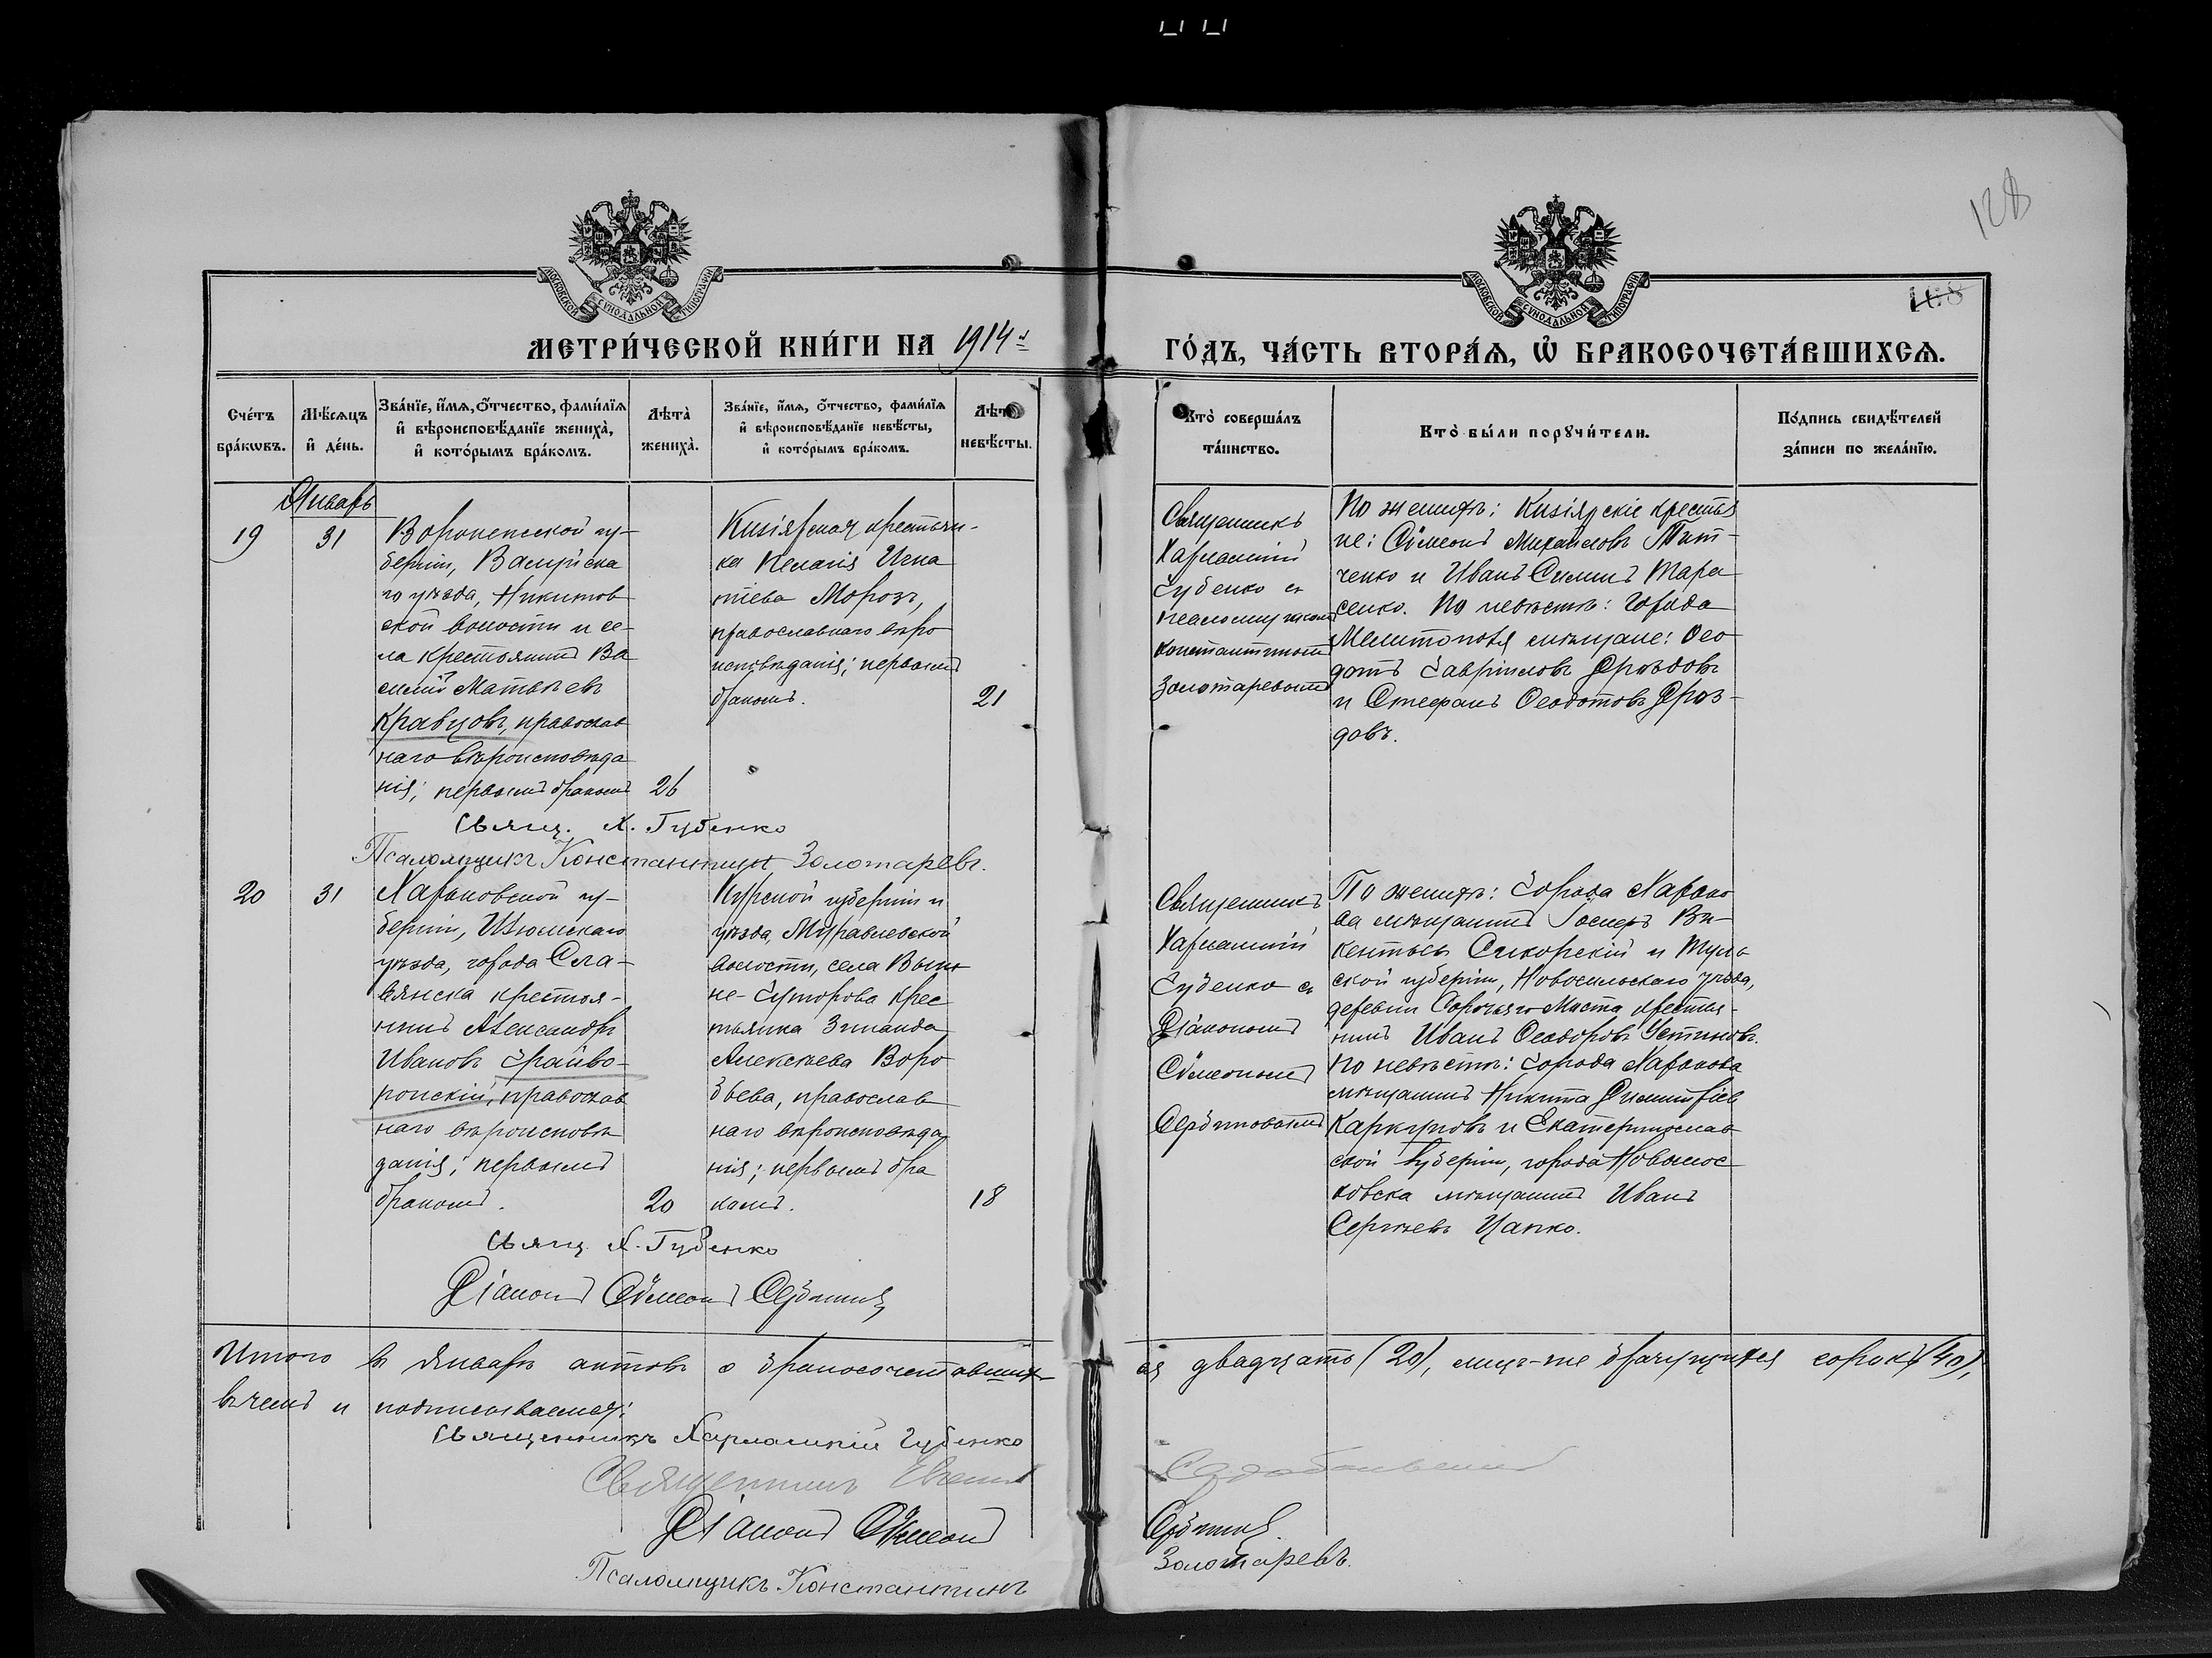 128
168
МОСКОВСКОЙ СѴНОДАЛЬНОЙ ТИПОГРАФІИ
МОСКОВСКОЙ СѴНОДАЛЬНОЙ ТИПОГРАФІИ
МЕТРИ́ЧЕСКОЙ КНИ́ГИ НА 1914 г.
ГО́ДЪ, ЧА́СТЬ ВТОРА́Ѧ, Ѡ҆ БРАКОСОЧЕТА́ВШИХСѦ.
Сче́тъ
бра́кѡвъ.
Мѣ́сѧцъ
и҆ де́нь.
Зва́нїе, и҆́мѧ, ѻ҆́тчество, фами́лїѧ
и҆ вѣроисповѣ́данїе жениха̀,
и҆ кото́рымъ бра́комъ.
Лѣта̀
жениха̀.
Зва́нїе, и҆́мѧ, ѻ҆́тчество, фами́лїѧ
и҆ вѣроисповѣ́данїе невѣ́сты,
и҆ кото́рымъ бра́комъ.
Лѣта̀
невѣ́сты.
Кто̀ соверша́лъ
та́инство.
Кто̀ бы́ли порꙋчи́тели.
По́дпись свидѣ́телей
за́писи по жела́нїю.
Январь
19
31
Воронежской гу-
берніи, Валуйска
го уѣзда, Никитов
ской волости и се-
ла крестьянинъ Ва
силій Матѳѣевъ
Кравцовъ, православ
наго вѣроисповѣда
нія; первымъ бракомъ
26
Кизіярская крестьян-
ка Пелагія Игна
тіева Морозъ,
православнаго вѣро
исповѣданія; первымъ
бракомъ.
21
Священникъ
Харлампій
Губенко съ
псаломщикомъ
Константиномъ
Золотаревымъ
По женихѣ: Кизіярскіе крестья
не: Сѵмеонъ Михайловъ Тит-
ченко и Иванъ Силинъ Тара
сенко. По невѣстѣ: города
Мелитополя мѣщане: Ѳео
дотъ Гавріиловъ Дроздовъ
и Стефанъ Ѳеодотовъ Дроз-
довъ.
Свящ. Х. Губенко
Псаломщикъ Константинъ Золотаревъ.
20
31
Харьковской гу-
берніи, Изюмскаго
уѣзда, города Сла-
вянска крестья-
нинъ Александръ
Ивановъ Грайво-
ронскій, православ
наго вѣроисповѣ
данія; первымъ
бракомъ.
20
Курской губерніи и
уѣзда, Муравлевской
волости, села Выш
не-Гуторова крес
тьянка Зинаида
Алексѣева Воро
бьева, православ
наго вѣроисповѣда
нія; первымъ бра
комъ.
18
Священникъ
Харлампій
Губенко съ
Діакономъ
Сѵмеономъ
Сербиновымъ
По женихѣ: города Харько
ва мѣщанинъ Іосифъ Ви-
кентьевъ Сикорскій и Туль
ской губерніи, Новосильскаго уѣзда,
деревни Сорочьяго Моста крестья-
нинъ Иванъ Ѳеодоровъ Устиновъ.
По невѣстѣ: города Харькова
мѣщанинъ Никита Димитріев
Каркуновъ и Екатеринослав
ской губерніи, города Новомос
ковска мѣщанинъ Иванъ
Сергѣевъ Цапко.
Свящ. Х. Губенко
Діаконъ Сѵмеонъ Сербиновъ
Итого въ Январѣ актовъ о бракосочетавших
ся двадцать (20), лицъ-же брачущихся сорокъ (40),
въ чемъ и подписываемся:
Священникъ Харлампій Губенко
Священникъ Евгеній
Діаконъ Сѵмеонъ Сербиновъ.
Псаломщикъ Константинъ Золотаревъ.